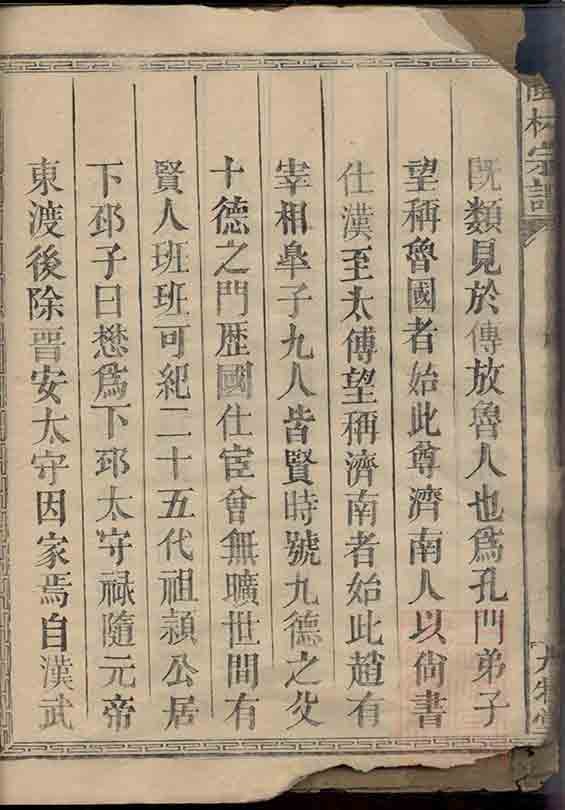 林宗譜
既類見於傳放魯人也爲孔門弟子
望稱魯國者始此尊濟南人以尙書
仕漢至太傅望稱濟南者始此趙有
宰相皐子九人皆賢時號九德之父
十德之門歴國仕宦曾無曠世間有
賢人班班可紀二十五代祖穎公居
下邳子曰懋爲下邳太守禄隨元帝
東渡後除晋安太守因家焉自漢武